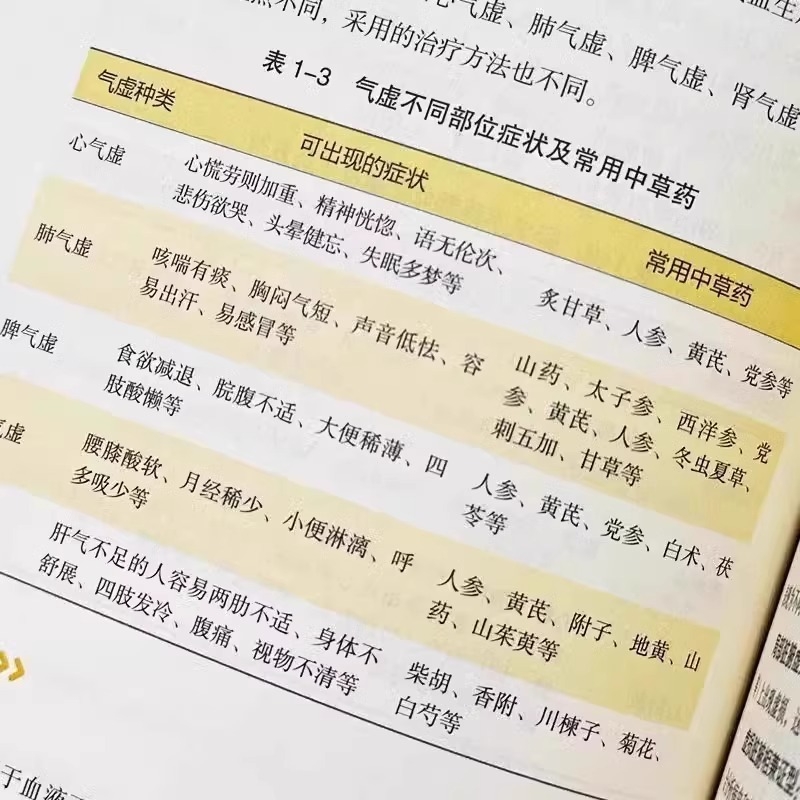 气虚、肺气虚、脾气虚、肾气虚
不同，采用的治疗方法也不同。
表 1-3 气虚不同部位症状及常用中草药
气虚种类 可出现的症状 常用中草药
心气虚 心慌劳则加重、精神恍惚、语无伦次、
悲伤欲哭、头晕健忘、失眠多梦等 炙甘草、人参、黄芪、党参等
肺气虚 咳喘有痰、胸闷气短、声音低怯、容
易出汗、易感冒等 山药、太子参、西洋参、党
参、黄芪、人参、冬虫夏草、
刺五加、甘草等
脾气虚 食欲减退、脘腹不适、大便稀薄、四
肢酸懒等 人参、黄芪、党参、白术、茯
苓等
气虚 腰膝酸软、月经稀少、小便淋漓、呼
多吸少等 人参、黄芪、附子、地黄、山
药、山茱萸等
肝气不足的人容易两肋不适、身体不
舒展、四肢发冷、腹痛、视物不清等 柴胡、香附、川楝子、菊花、
白芍等
于血液